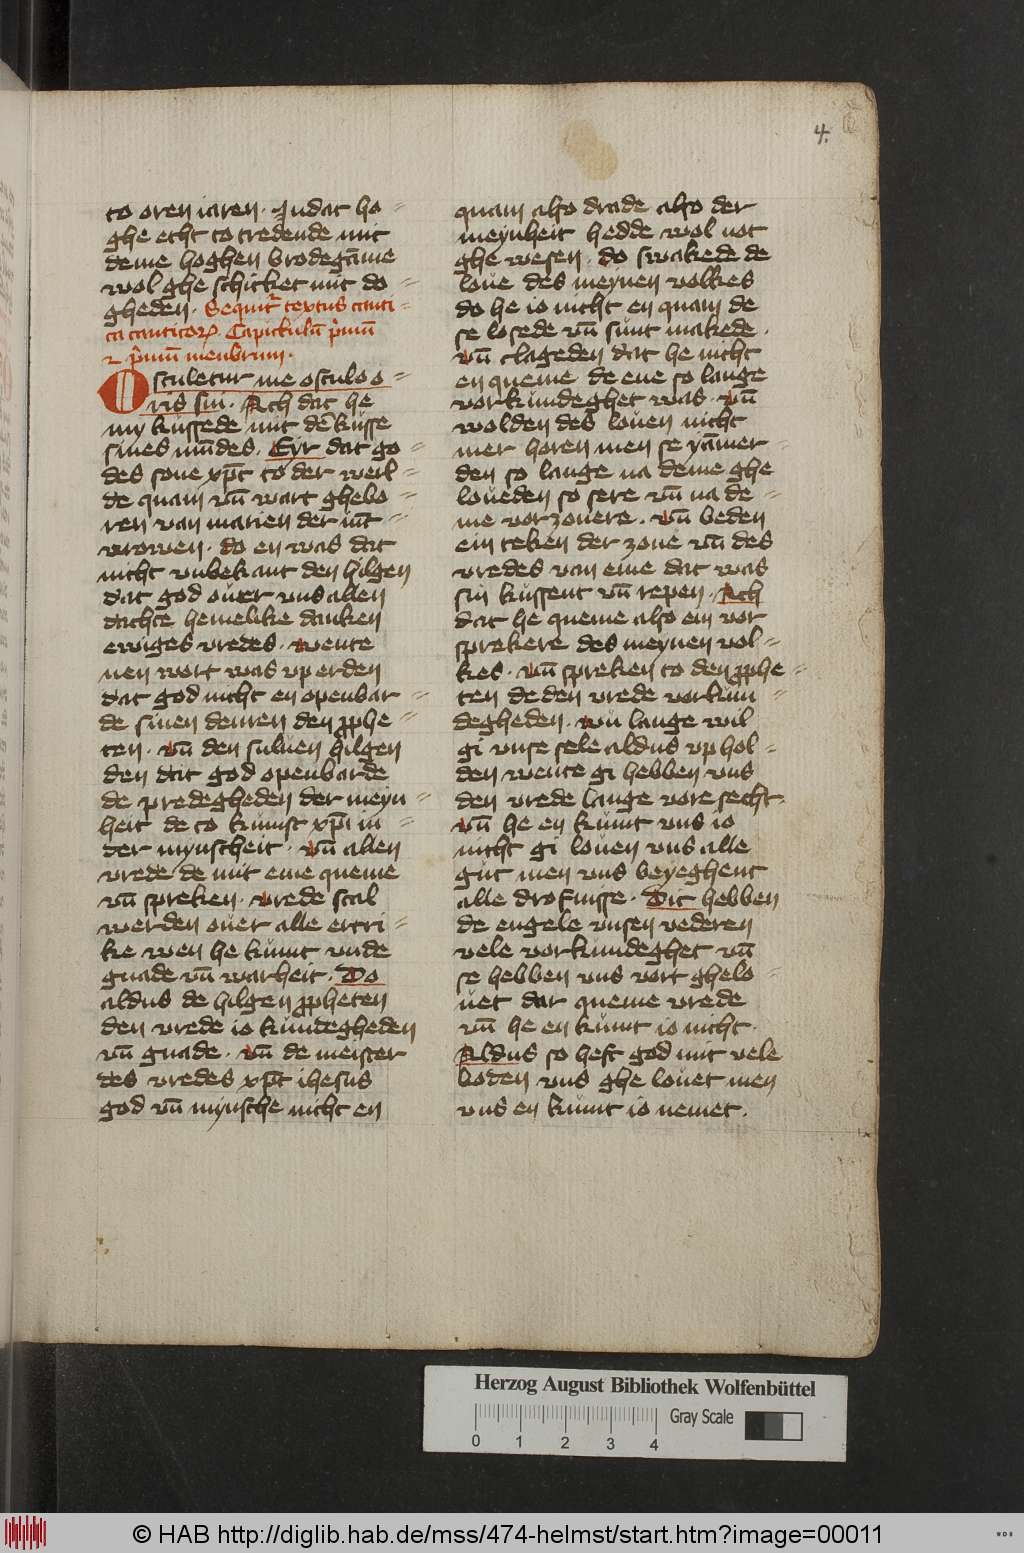 4.
to oren iaren. Jndat ho=
ghe echt to tredende mit
deme hoghen brodegāme
wol ghe schicket mit do=
gheden. Sequit᷑ textus canti=
ca canticoꝝ. Capitulū p̄mū
⁊ p̄mū menbrum.
Osculetur me osculo o=
ris sui. Ach dat he
my kussede mit dē kusse
sines mūdes. Eyr dat go=
des sone xp̄t to der werl=
de quam vn̄ wart ghebo=
ren van marien der iūc=
vrowen. do en was dat
nicht vnbekant den hilgen
dat god ouer vns allen
dachte hemelike danken
ewiges vredes. wente
nen wort was vp erden
dat god nicht en openbar=
de sinen denren den ꝓphe=
ten. vn̄ den suluen hilgen
den dat god openbarde
de predegheden der meyn=
heit de to kumst xp̄i in=
der mynscheit. vn̄ allen
vrede de mit eme queme
vn̄ spreken. vrede scal
werden ouer alle ertri=
ke wen he kumt vnde
gnade vn̄ warheit. Do
aldus de hilgen ꝓpheten
den vrede io kundegheden
vn̄ gnade. vn̄ de meister
des vredes xp̄t ihesus
god vn̄ mynsche nicht en
quam also drade also der
meynheit hedde wol not
ghe wesen. do swakede de
loue des meynen volkes
do he io nicht en quam de
se losede vn̄ sunt makede.
vn̄ clageden dat he nicht
en queme de ene so lange
vorkundeghet was. vn̄
wolden des louen nicht
mer horen men se yāmer=
den so lange na deme ghe
loueden so sere vn̄ na de=
me vorzonere. vn̄ beden
ein teken der zone vn̄ des
vredes van eme dat was
sin kussent vn̄ repen. Ach
dat he queme also ein vor
sprekere des meynen vol=
kes. vn̄ spreken to den ꝓphe=
ten de den vrede vorkun=
degheden. wu lange wil
gi vnse sele aldus vp hol=
den wente gi hebben vns
den vrede lange vore secht.
vn̄ he en kumt vns io
nicht gi louen vns alle
gut men vns beyeghent
alle drofnisse. Dit hebben
de engele vnsen vederen
vele vorkundeghet vn̄
se hebben vns vort ghelo=
uet dar queme vrede
vn̄ he en kumt io nicht.
Aldus so heft god mit vele
boden vns ghe louet men
vns en kumt io nemet.
Herzog August Bibliothek Wolfenbüttel
Gray Scale
0 1 2 3 4
© HAB http://diglib.hab.de/mss/474-helmst/start.htm?image=00011